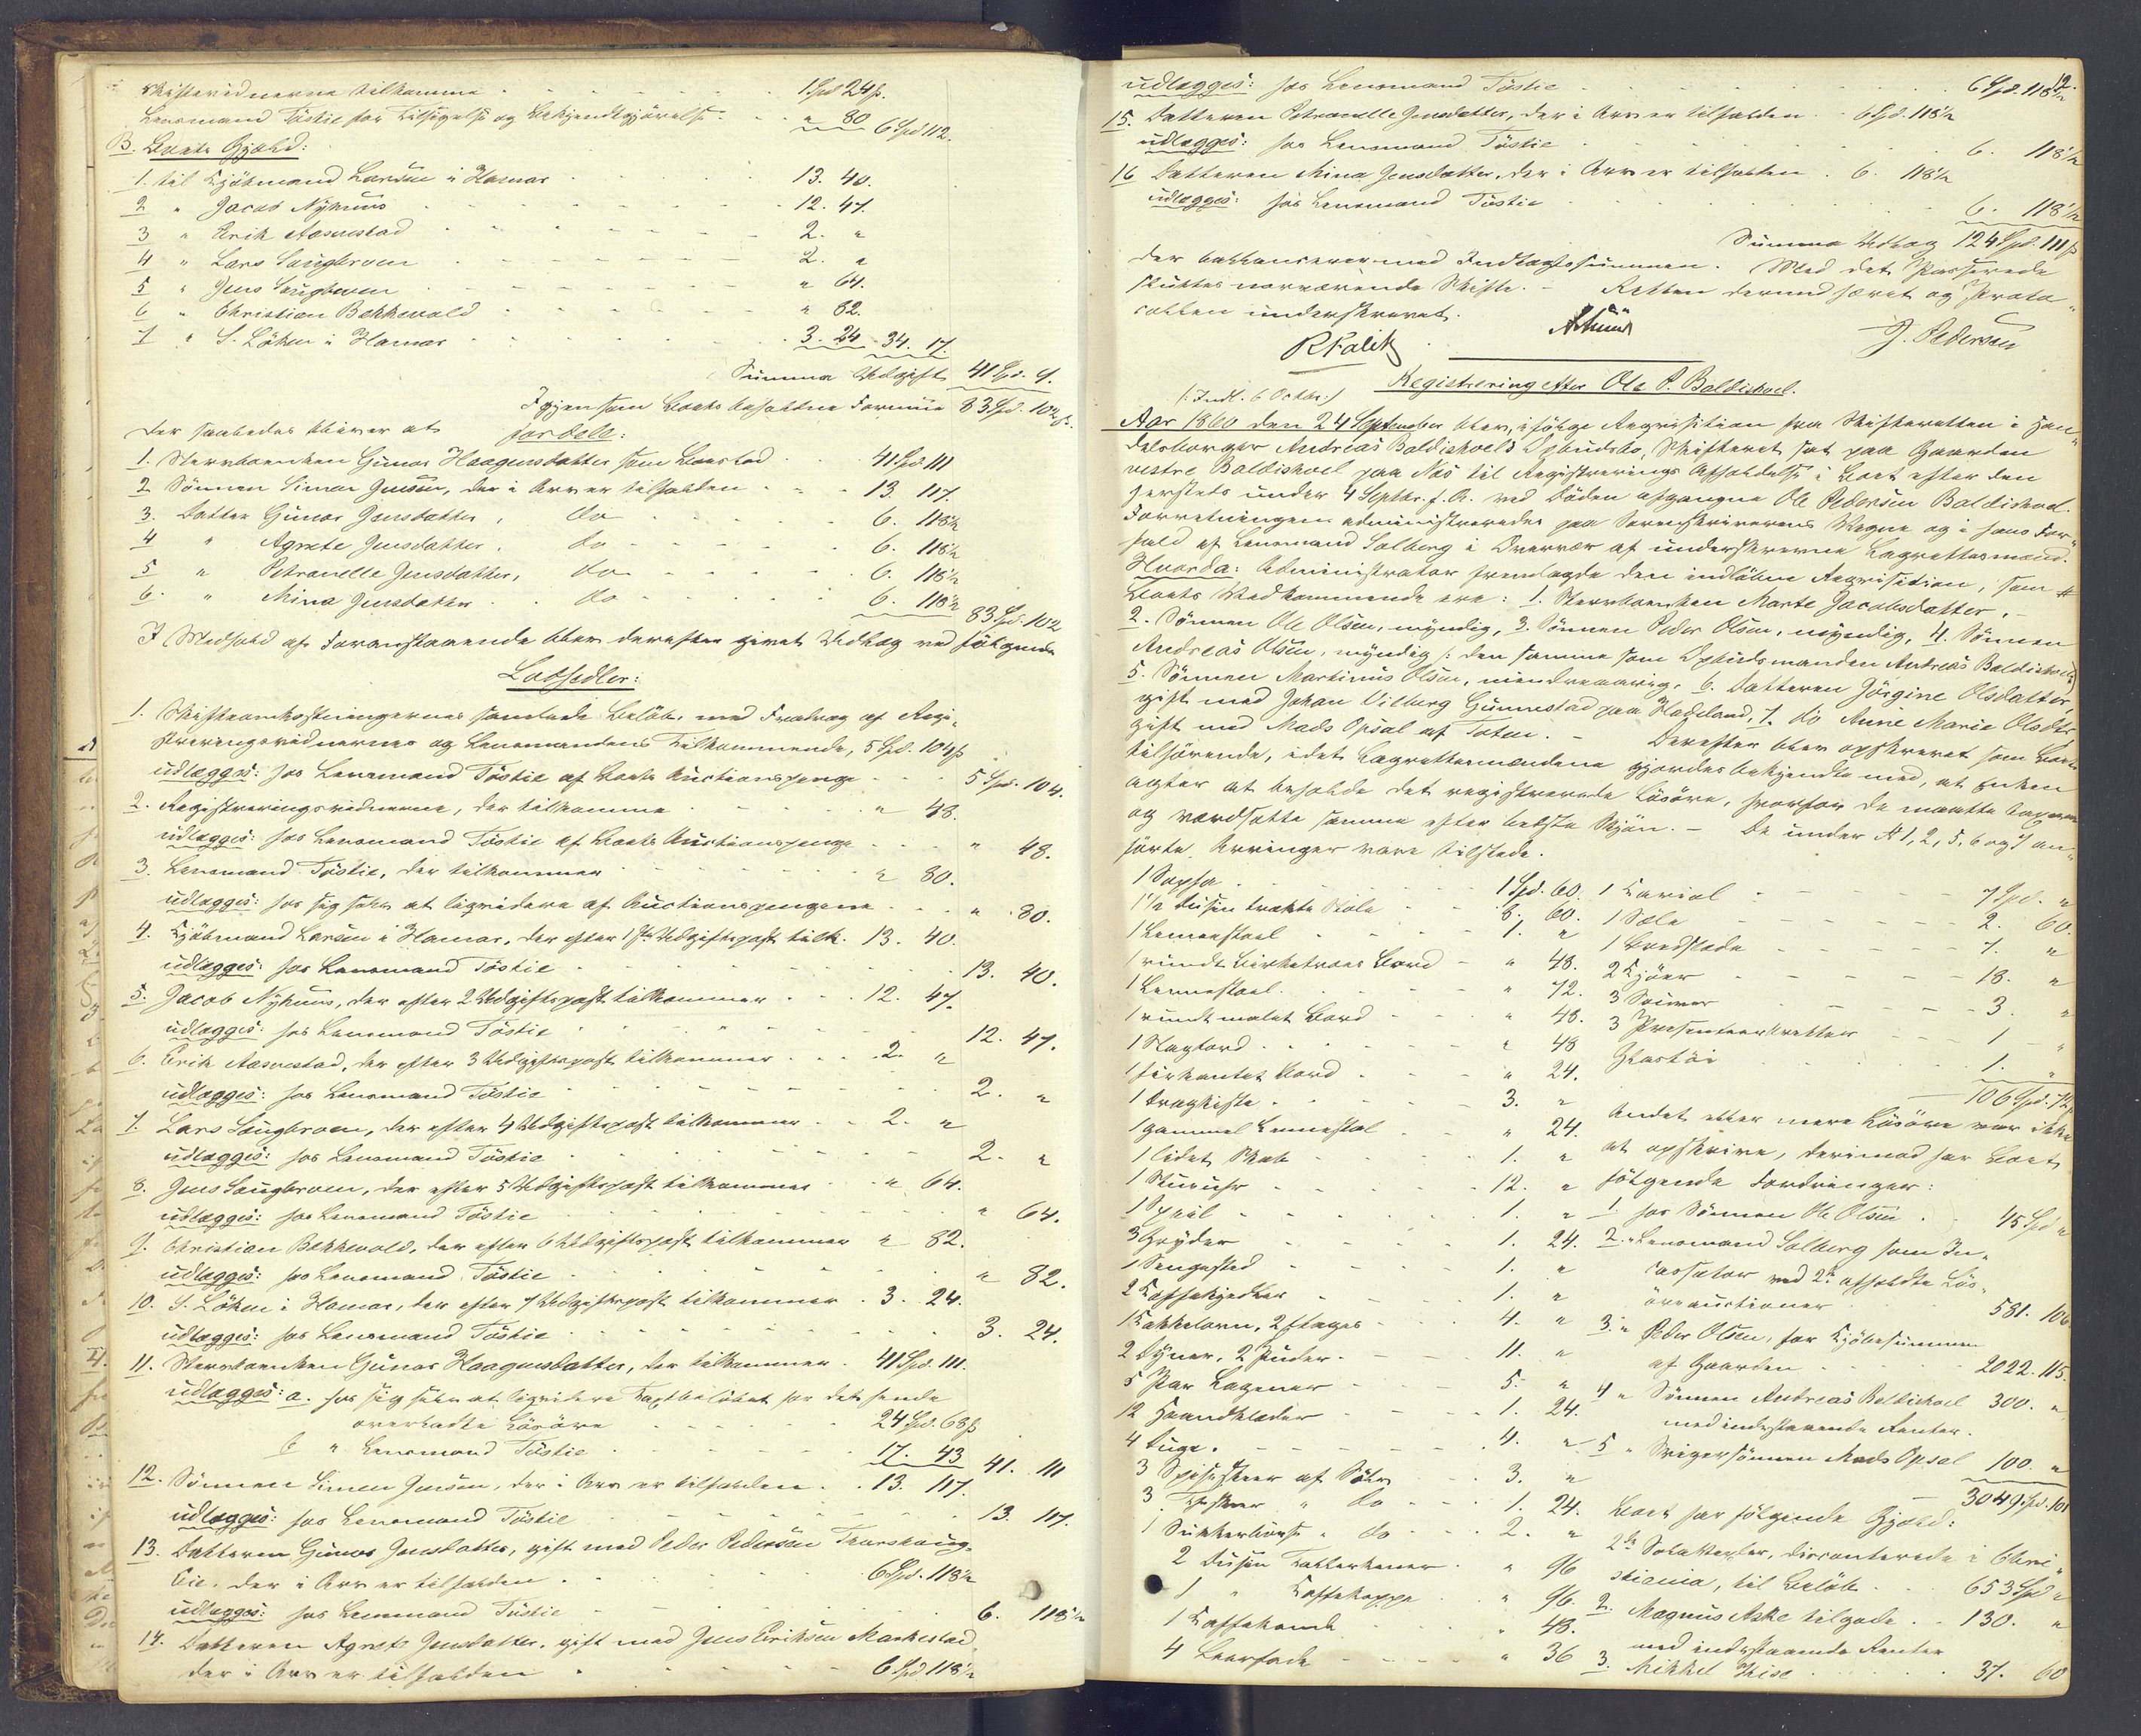 Skiftevidnerne tilkomme 1 Spd 24 ß.
Lensmand Töstie for Tilsigelse og Bekjendtgjörelse " 80 6 Spd 112.
B. Boets Gjæld:
1. til Kjöbmand Larsen i Hamar 13. 40.
2 " Jacob Nyhuus 12. 47.
3 " Erik Aasvestad 2. "
4 " Lars Saugbroen 2. "
5 " Jens Saugbroen " 64.
6 " Christian Bekkevold " 82.
7 " S. Löken i Hamar 3. 24 34. 17.
Summa Udgift 41 Spd. 9.
Igjen som Boets beholdne Formue 83 Spd. 102 ß.
der saaledes bliver at fordele:
1. Stervboenken Gunor Haagensdatter som Boeslod 41 Spd 111
2 Sönnen Simen Jensen, der i Arv er tilfalden 13. 117.
3. Datter Gunor Jensdatter, do 6. 118½
4 " Agnete Jensdatter. do 6. 118½
5 " Petronelle Jensdatter, do 6. 118½
6. " Mina Jensdatter do 6. 118½ 83 Spd. 102
I Medhold af Foranstaaende blev derefter givet Udlæg ved fölgende
Lodsedler:
1. Skifteomkostningernes samlede Belöb, med Fradrag af Regi-
streringsvidnernes og Lensmandens Tilkommende, 5 Spd. 104 ß
udlægges: hos Lensmand Töstie af Boets Auctionspenge 5 Spd. 104.
2. Registreringsvidnerne, der tilkomme " 48.
udlægges: hos Lensmand Töstie af Boets Auctionspenge " 48.
3. Lensmand Töstie, der tilkommer " 80.
udlægges: hos sig selv at liqvidere af Auctionspengene " 80.
4. Kjöbmand Larsen i Hamar, der efter 1ste Udgiftspost tilk. 13. 40.
udlægges: hos Lensmand Töstie 13. 40.
5. Jacob Nyhuus, der efter 2 Udgiftspost tilkommer 12. 47.
udlægges: hos Lensmand Töstie 12. 47.
6. Erik Aasvestad, der efter 3 Udgiftspost tilkommer 2. "
udlægges: hos Lensmand Töstie 2. "
7. Lars Saugbroen, der efter 4 Udgiftspost tilkommer 2. "
udlægges: hos Lensmand Töstie 2. "
8. Jens Saugbroen, der efter 5 Udgiftspost tilkommer " 64.
udlægges: hos Lensmand Töstie " 64.
9. Christian Bekkevold, der efter 6 Udgiftspost tilkommer " 82.
udlægges: hos Lensmand Töstie " 82.
10. S. Löken i Hamar, der efter 7 Udgiftspost tilkommer 3. 24.
udlægges: hos Lensmand Töstie 3. 24.
11. Stervboenken Gunor Haagensdatter, der tilkommer 41 Spd. 111.
udlægges: a. hos sig selv at liqvidere Taxtbelöbet for det hende
overladte Lösöre 24 Spd. 68 ß
b " Lensmand Töstie 17. 43 41. 111
12. Sönnen Simen Jensen, der i Arv er tilfalden 13. 117.
udlægges: hos Lensmand Töstie 13. 117.
13. Datteren Gunor Jensdatter, gift med Peder Pedersen Thorshaug-
Eie, der i Arv er tilfalden 6 Spd. 118½
udlægges: hos Lensmand Töstie 6. 118½
14. Datteren Agnete Jensdatter, gift med Jens Eriksen Markestad,
der i Arv er tilfalden 6 Spd. 118½
12.
udlægges: hos Lensmand Töstie 6 Spd. 118½
15. Datteren Petronelle Jensdatter, der i Arv er tilfalden 6 Spd. 118½
udlægges: hos Lensmand Töstie 6. 118½
16 Datteren Mina Jensdatter, der i Arv er tilfalden 6. 118½
udlægges: hos Lensmand Töstie 6. 118½
Summa Udlæg 124 Spd. 111 ß
der ballancerer med Indtægtssummen. Med det Passerede
sluttes nærværende Skifte. - Retten dermed hævet og Proto-
collen underskrevet.
J. Pedersen
(: Indl. 6 Octbr. :) Registrering efter Ole P. Baldishoel.
Aar 1860 den 24 September blev, ifölge Reqvisition fra Skifteretten i Han-
delsborger Andreas Baldishoels Opbudsbo, Skifteret sat paa Gaarden
vestre Baldishoel paa Næs til Registrerings Afholdelse i Boet efter den
hersteds under 4 Septbr. f. A. ved Döden afgangne Ole Pedersen Baldishoel.
Forretningen administreredes paa Sorenskriverens Vegne og i hans For-
fald af Lensmand Solberg i Overvær af underskrevne Lagrettesmænd.
Hvorda: Administrator fremlagde den indlöbne Reqvisition, som #
Boets Vedkommende ere: 1. Stervboenken Marte Jacobsdatter,
2. Sönnen Ole Olsen, myndig, 3. Sönnen Peder Olsen, myndig, 4. Sönnen
Andreas Olsen, myndig (: den samme som Opbudsmanden Andreas Baldishoel :)
5. Sönnen Martinus Olsen, mindreaarig, 6. Datteren Jörgine Olsdatter,
gift med Johan Vilberg Gunnestad paa Hadeland, 7. do Anne Marie Olsdtr.
gift med Mads Opsal af Toten. - Derefter blev opskrevet som Boet
tilhörende, idet Lagrettesmændene gjordes bekjendte med, at Enken
agter at beholde det registrerede Lösöre, hvorfor de maatte taxere
og værdsætte samme efter bedste Skjön. - De under # 1, 2, 5, 6 og 7 an-
förte Arvinger vare tilstede.
1 Sopha 1 Spd. 60.
1½ Dusin trækte Stole 8. 60.
1 Lænestoel 1. "
1 rundt Birketræes Bord " 48.
1 Lænestoel " 72.
1 rundt malet Bord " 48.
1 Slagbord " 48
1 firkantet Bord " 24.
1 Dragkiste 3. "
1 gammel Lænestol " 24.
1 lidet Skab 1. "
1 Stueuhr 12. "
1 Speil 1. "
3 Gryder 1. 24.
1 Sengested 1. "
2 Kaffekjedler 1. "
1 Kakkelovn, 2 Etages 4. "
2 Dyner, 2 Puder 11. "
5 Par Lagener 5. "
12 Haandklæder 1. 24.
4 Duge 4. "
3 Spiseskeer af Sölv 3. "
3 Theskeer " do 1. 24.
1 Sukkerklype " do 2. "
2 Dusin Tallerkener " 96
1 " Kaffekopper " 96.
1 Kaffekande " 48.
4 Leerfade " 36
1 Kariol 7 Spd. "
1 Sæle 2. 60.
1 Bredslede 7. "
2 Kjöer 18. "
3 Sauer 3. "
3 Presenteerbretter 1 "
Glastöi 1. "
106 Spd. 72 ß
Andet eller mere Lösöre var ikke
at opskrive, derimod har Boet
fölgende Fordringer:
1. hos Sönnen Ole Olsen 45 Spd "
2. " Lensmand Solberg som In-
cassator ved 2de afholdte Lös-
öreauctioner 581. 106
3. " Peder Olsen, for Kjöbesummen
af Gaarden 2022. 115.
4 " Sönnen Andreas Baldishoel 300. "
med indestaaende Renter.
5 " Svigersönnen Mads Opsal 100. "
3049 Spd. 101
Boet har fölgende Gjæld:
1. 2de Solavexler, disconterede i Chri-
stiania, til Beløb 653 Spd "
2. Magnus Aske tilgode 130. "
med indestaaende Renter
3. Mikkel Hise 37. 60